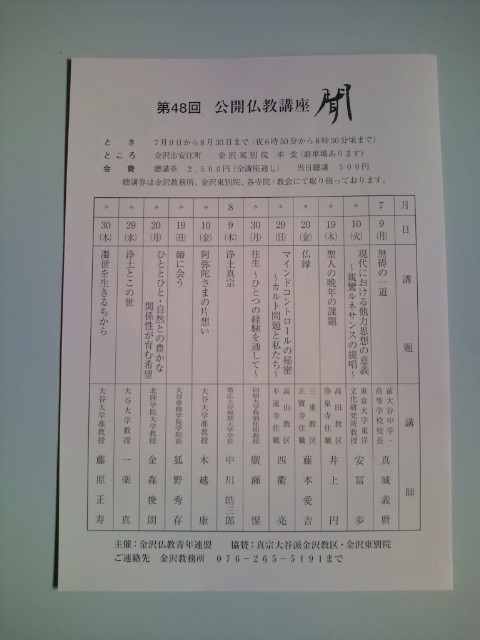 第48回 公開仏教講座 聞
とき 7月9日から8月30日まで(夜6時50分から8時50分頃まで)
ところ 金沢市安江町 金沢東別院 本堂(駐車場あります)
会費 聴講券 2,500円(全講座通し) 当日聴講 500円
聴講券は金沢教務所、金沢東別院、各寺院・教会にて取り扱っております。
月 日 講題 講師
7 9(月) 無碍の一道 前大谷中学・高等学校校長 真城義麿
〃 10(火) 現代における他力思想の意義 ~親鸞ルネサンスの提唱~ 東京大学東洋文化研究所教授 安冨歩
〃 19(木) 聖人の晩年の課題 高田教区浄泉寺住職 井上円
〃 20(金) 仏縁 三重教区正賢寺住職 藤本愛吉
〃 29(日) マインドコントロールの秘密 ~カルト問題と私たち~ 高山教区不遠寺住職 四衢亮
〃 30(月) 往生~ひとつの経験を通して~ 同朋大学特別任用教授 廣瀬惺
8 9(木) 浄土真宗 帯広大谷短期大学学長 中川皓三郎
〃 10(金) 阿弥陀さまの片想い 大谷大学准教授 木越康
〃 19(日) 師に会う 大谷専修学院学院長 狐野秀存
〃 20(月) ひととひと・自然との豊かな関係性が育む希望 北陸学院大学教授 金森俊朗
〃 29(水) 浄土とこの世 大谷大学教授 一楽真
〃 30(木) 濁世を生きるちから 大谷大学准教授 藤原正寿
主催:金沢仏教青年連盟 協賛:真宗大谷派金沢教区・金沢東別院
ご連絡先 金沢教務所 076-265-5191まで